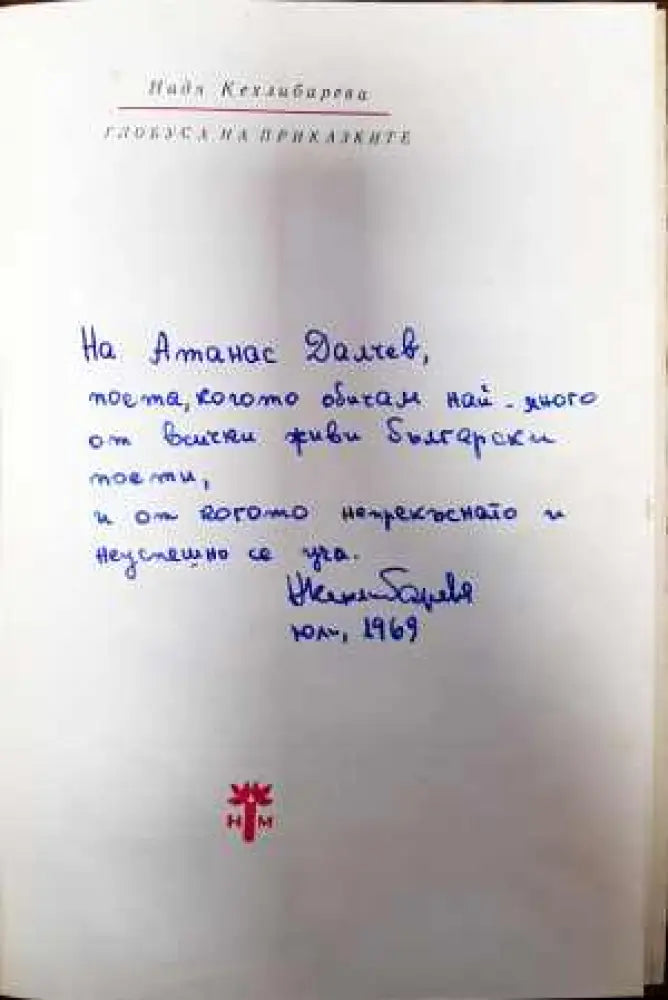 Надя Кехлибарева
ГЛОБУСА НА ПРИКАЗКИТЕ
На Атанас Далчев,
поета, когото обичам най-много
от всички живи български
поети,
и от когото непрекъснато и
неуспешно се уча.
НКехлибарева
юли, 1969
Н М